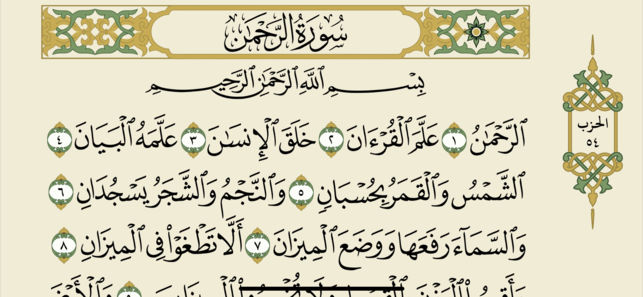 سُورَةُ الرَّحْمَٰن
بِسْمِ اللَّهِ الرَّحْمَٰنِ الرَّحِيمِ
الرَّحْمَٰنُ ١ عَلَّمَ الْقُرْءَانَ ٢ خَلَقَ الْإِنسَٰنَ ٣ عَلَّمَهُ الْبَيَانَ ٤
الشَّمْسُ وَالْقَمَرُ بِحُسْبَانٍ ٥ وَالنَّجْمُ وَالشَّجَرُ يَسْجُدَانِ ٦
وَالسَّمَآءَ رَفَعَهَا وَوَضَعَ الْمِيزَانَ ٧ أَلَّا تَطْغَوْا فِي الْمِيزَانِ ٨
الحزب
٥٤